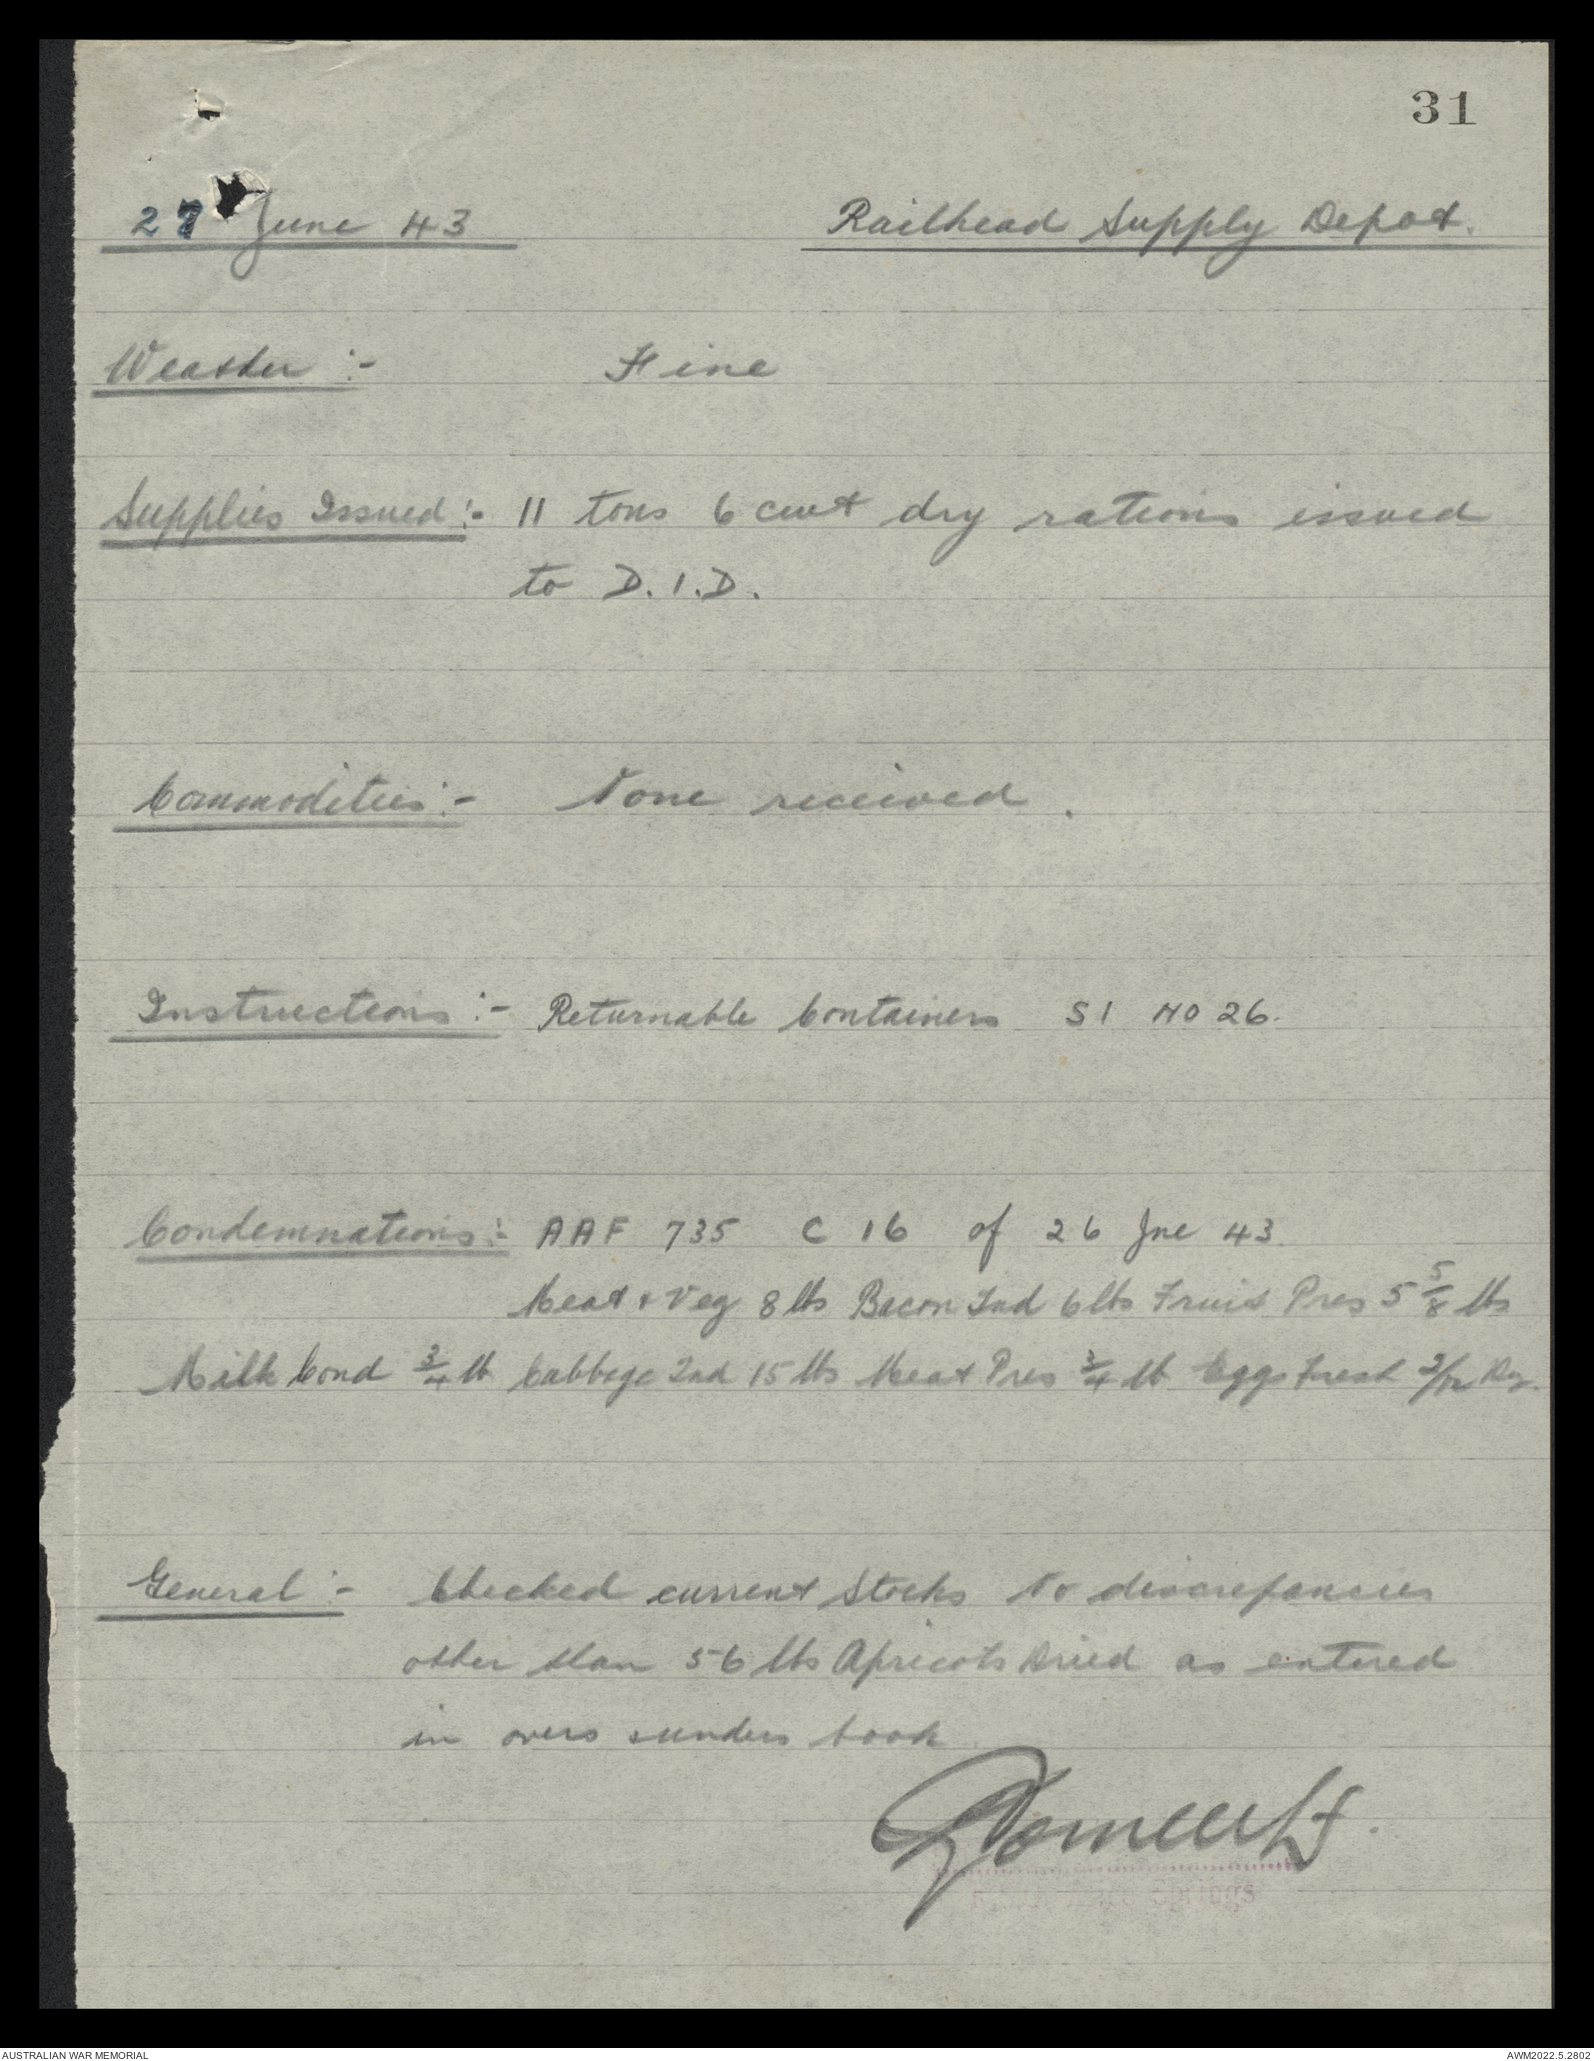 31
27 June 43 Railhead Supply Depot.
Weather :- Fine
Supplies Issued :- 11 tons 6 cwt dry rations issued
to D.I.D.
Commodities :- None received.
Instructions :- Returnable Containers SI NO 26.
Condemnations :- AAF 735 C 16 of 26 Jne 43
Meat & Veg 8 lbs Bacon Tnd 6 lbs Fruit Pres 5 5/8 lbs
Milk Cond 3/4 lb Cabbage Tnd 15 lbs Meat Pres 3/4 lb Eggs Fresh 2/12 Dz.
General :- Checked current Stocks No discrepancies
other than 56 lbs Apricots Dried as entered
in overs & unders book
Springs
AUSTRALIAN WAR MEMORIAL AWM2022.5.2802